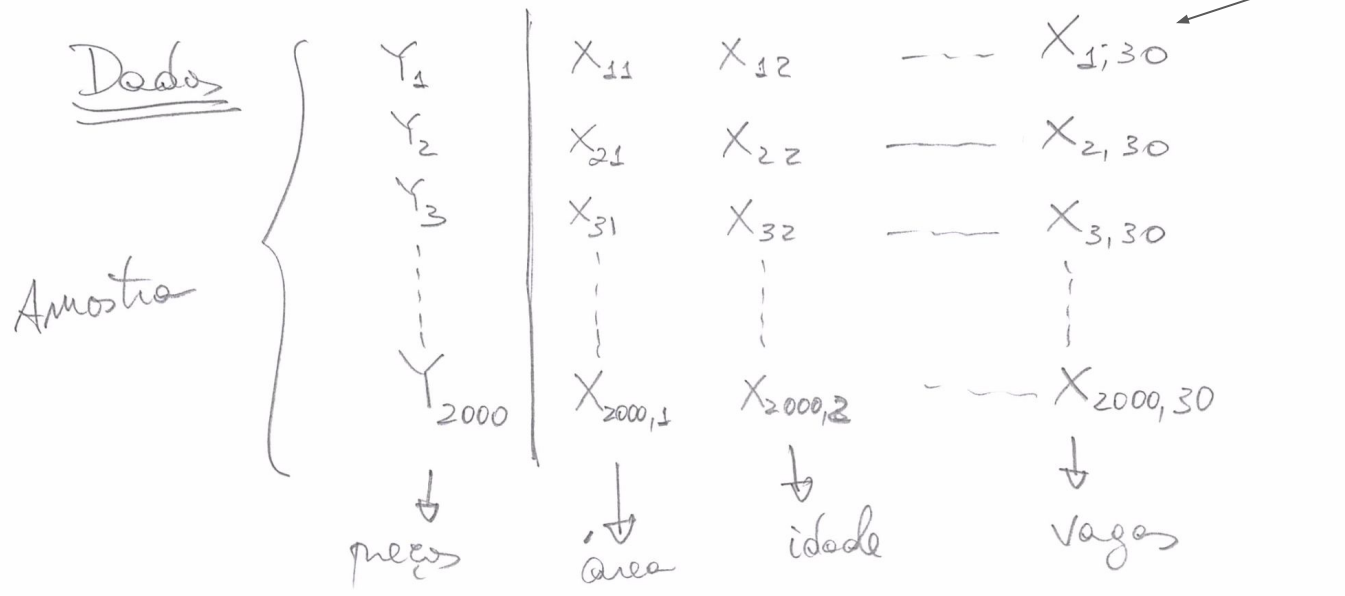 Dados Y₁ X₁₁ X₁₂ --- X₁;₃₀
Y₂ X₂₁ X₂₂ --- X₂,₃₀
Y₃ X₃₁ X₃₂ --- X₃,₃₀
Amostra
Y₂₀₀₀ X₂₀₀₀,₁ X₂₀₀₀,₂ --- X₂₀₀₀,₃₀
preços área idade vagas